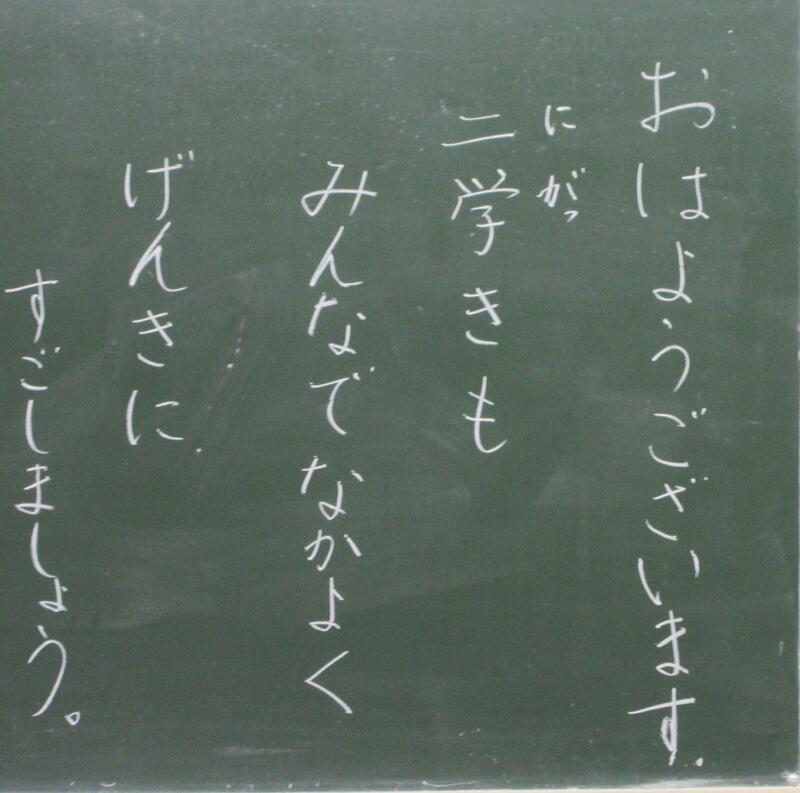 おはようございます.
にがっ
二学きも
みんなでなかよく
げんきに
すごしましょう。